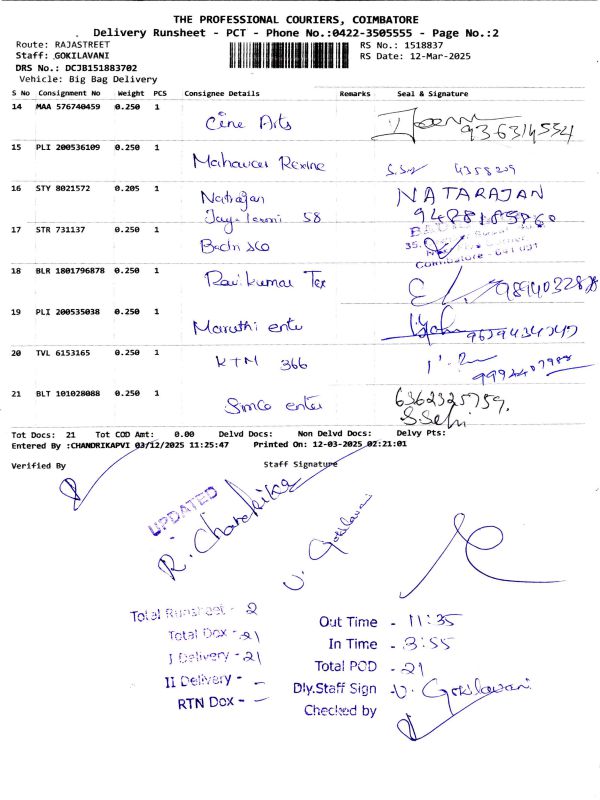 THE PROFESSIONAL COURIERS, COIMBATORE
Delivery Runsheet - PCT - Phone No.:0422-3505555 - Page No.:2
Route: RAJASTREET RS No.: 1518837
Staff: GOKILAVANI RS Date: 12-Mar-2025
DRS No.: DCJB151883702
Vehicle: Big Bag Delivery
S No Consignment No Weight PCS Consignee Details Remarks Seal & Signature
14 MAA 576740459 0.250 1 Cine Arts
15 PLI 200536109 0.250 1 Mahaveer Rexine
16 STY 8021572 0.205 1 Natrajan NATARAJAN
58
17 STR 731137 0.250 1
Coimbatore - 641 001
18 BLR 1801796878 0.250 1 Ravikumar Tex 9894032878
19 PLI 200535038 0.250 1 Maruthi ente
20 TVL 6153165 0.250 1 KTM 366
21 BLT 101028088 0.250 1 Simco ente 6362325759
Tot Docs: 21 Tot COD Amt: 0.00 Delvd Docs: Non Delvd Docs: Delvy Pts:
Entered By :CHANDRIKAPVI 03/12/2025 11:25:47 Printed On: 12-03-2025 02:21:01
Verified By Staff Signature
UPDATED
R. Chandrika
V. Gokilavani
Total Runsheet - 2
Total Dox - 21
I Delivery - 21
II Delivery - -
RTN Dox - -
Out Time - 11:35
In Time - 3:55
Total POD - 21
Dly.Staff Sign - V. Gokilavani
Checked by